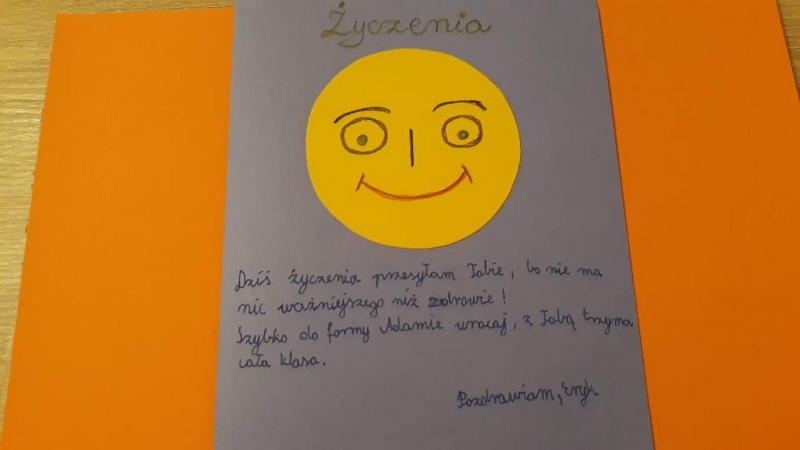 Życzenia
Dziś życzenia przesyłam Tobie, bo nie ma
nic ważniejszego niż zdrowie!
Szybko do formy Adamie wracaj, z Tobą trzyma
cała klasa.
Pozdrawiam, Eryk